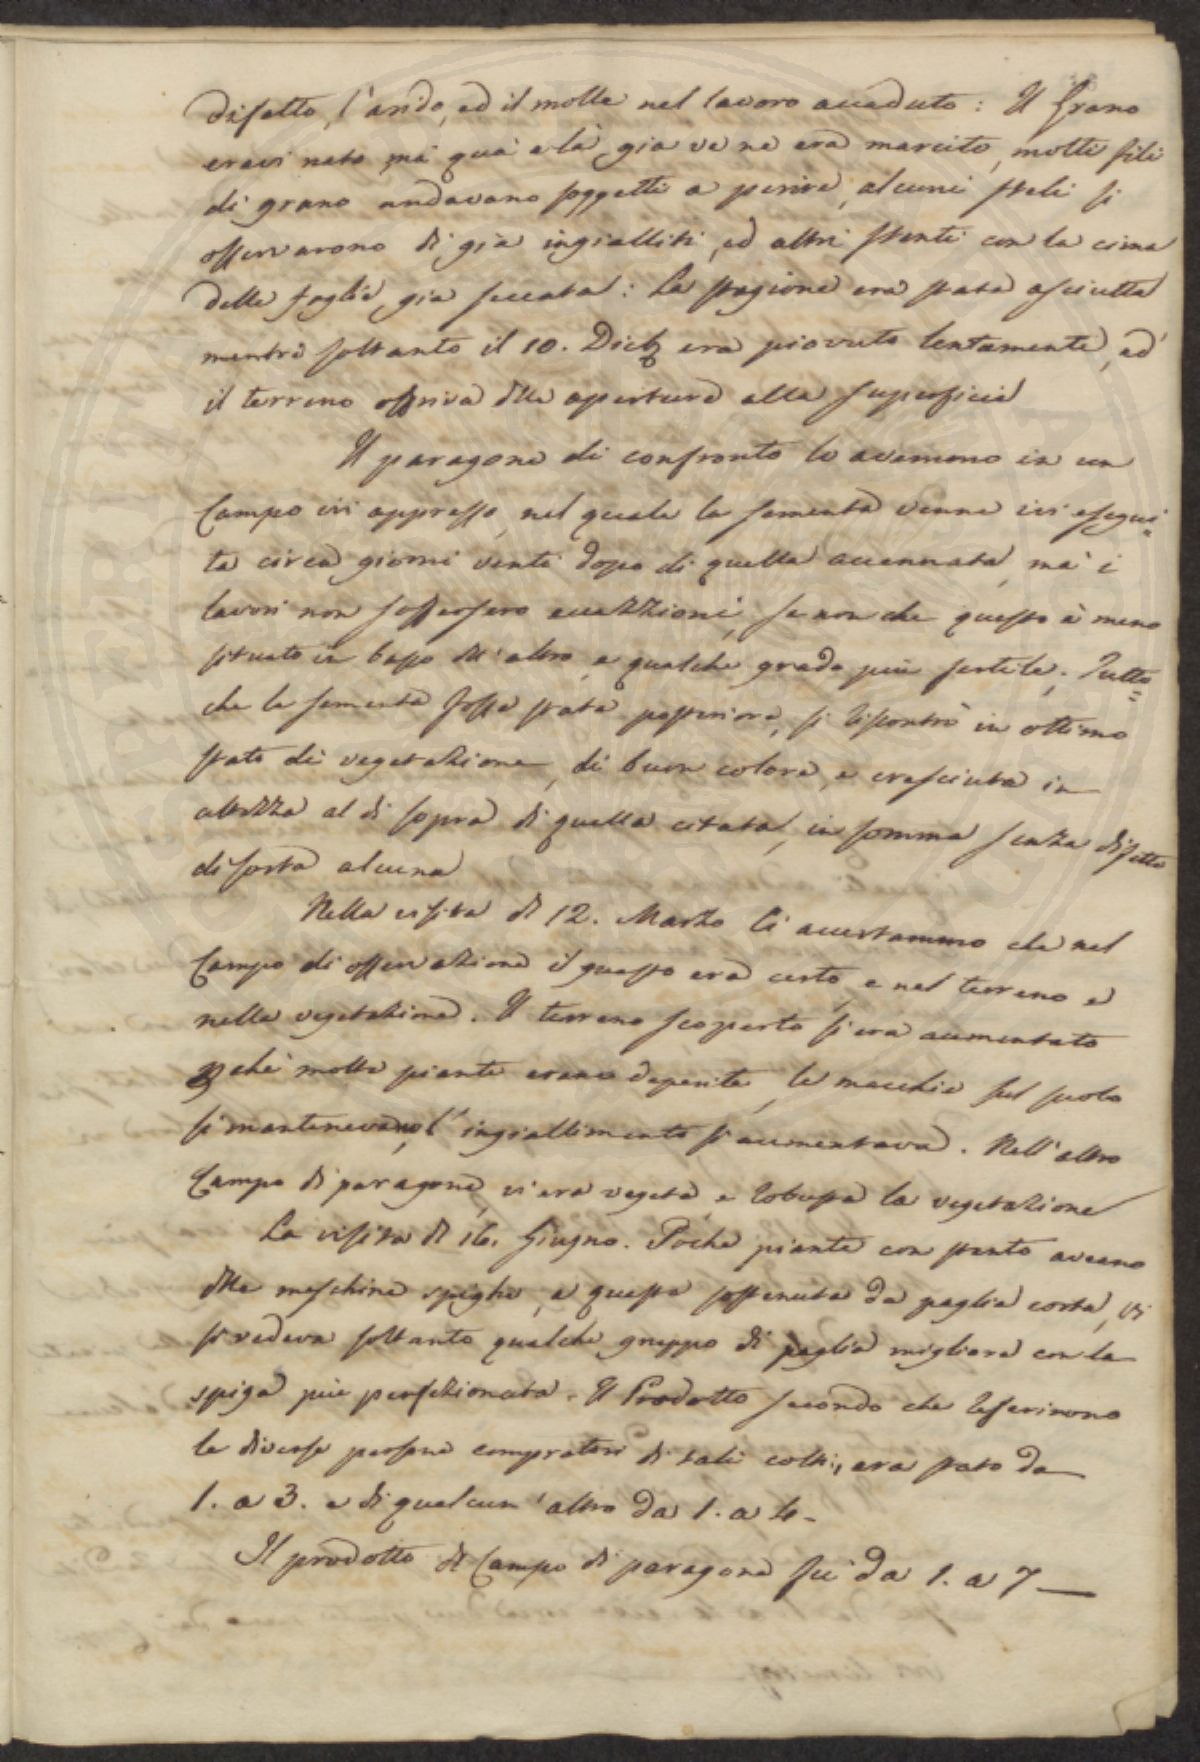 difetto, l'arido, ed il molle nel lavoro accaduto: Il Grano
eravi nato, mà quà e là già ve ne era marcito, molti fili
di grano andavano soggetti a perire, alcuni steli si
osservarono di già ingialliti, ed altri stenti con la cima
delle foglie già seccata: La stagione era stata asciutta
mentre soltanto il 10. Dicb. era piovuto lentamente, ed
il terreno offriva dlle aperture alla superficie
Il paragone di confronto lo avemmo in un
Campo ivi appresso, nel quale la sementa venne ivi esegui=
ta circa giorni venti dopo di quella accennata, mà i
lavori non soffersero eccezzioni, se non che questo è meno
situato in basso dll'altro, e qualche grado più fertile. Tutto=
che la sementa fosse stata posteriore, si riscontrò in ottimo
stato di vegetazione, di buon colore, e cresciuta in
altezza al di sopra di quella citata, in somma senza difetto
di sorta alcuna
Nella visita dl 12. Marzo ci accertammo che nel
Campo di osservazione il guasto era certo, e nel terreno e
nella vegetazione. Il terreno scoperto si era aumentato
pchè molte piante erano deperite, le macchie sul suolo
si mantenevano, l'ingiallimento si aumentava. Nell'altro
Campo di paragone, vi era vegeta, e robusta la vegetazione
La visita dl 16. Giugno. Poche piante con stento aveano
dlle meschine spighe, e queste sostenute da paglia corta, vi
si vedeva soltanto qualche gruppo di paglia migliore con la
spiga più perfezionata. Il Prodotto secondo che riferirono
le diverse persone compratori di tali colti, era stato da
1. a 3. e di qualcun'altro da 1. a 4.
Il prodotto dl Campo di paragone fu da 1. a 7